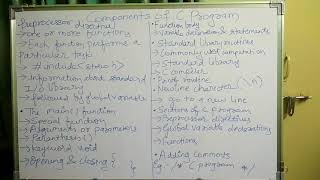 Components of C Program
Preprocessor directive
→ one or more functions
→ Each function performs a
Particular task
→ #include<stdio.h>
→ Information about standard
I/O library
→ Followed by global variable
• The main() function
→ Special function
→ Arguments or parameters
→ Paranthesis()
→ Keyword void
→ Opening & closing { }
• Function body
→ Variable declarations & statements
• Standard library routines
→ Commonly used computation
→ Standard library
→ C Compiler
→ Printf routine
• Newline character (\n)
→ go to a new line
• Sections of C program
→ Preprocessor directives
→ Global variable declarations
→ Functions
• Adding Comments
Eg - /* C program */